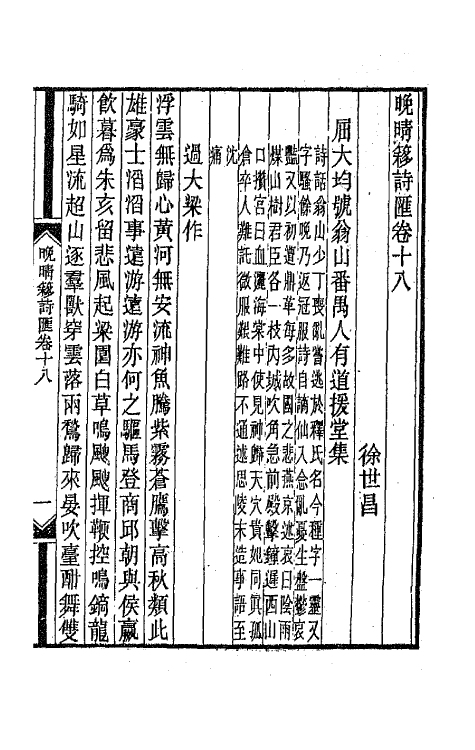 晚晴簃詩匯卷十八
徐世昌
屈大均號翁山番禺人有道援堂集
詩話翁山少丁喪亂嘗逃於釋氏名今種字一靈又
字騷餘晚乃返冠服詩自謫仙入念亂憂生盤鬱哀
豔又以初遭鼎革每多故國之悲燕京述哀曰陰雨
煤山樹君臣各一枝內城吹角急前殿擊鐘遲西山
口攢宮曰血灑海棠中使見神歸天穴貴妃同寘孤
倉卒人難託微服艱難路不通述思陵末造事語至
沈痛
過大梁作
浮雲無歸心黃河無安流神魚騰紫霧蒼鷹擊高秋類此
雄豪士滔滔事遠游遠游亦何之驅馬登商邱朝與侯嬴
飲暮爲朱亥留悲風起梁園白草鳴颼颼揮鞭控鳴鏑龍
騎如星流超山逐羣獸穿雲落兩鶖歸來晏吹臺酣舞雙
晚晴簃詩匯卷十八
一